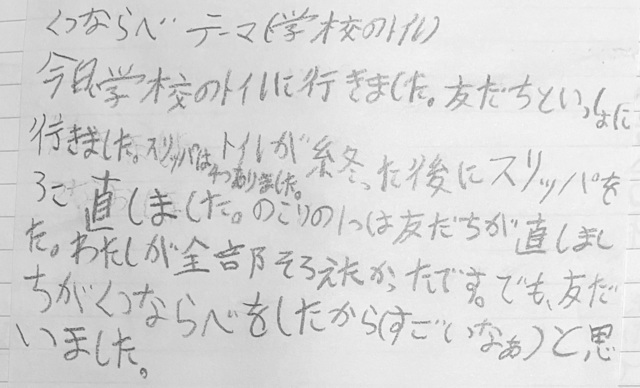 くつならべ テーマ(学校のトイル)
今日学校のトイルに行きました。友だちといっしょに
行きました。スリッパは4つありました。トイルが終った後にスリッパを
3こ直しました。のこりの1つは友だちが直しまし
た。わたしが全部そろえたかったです。でも、友だ
ちがくつならべをしたから(すごいなぁ)と思
いました。